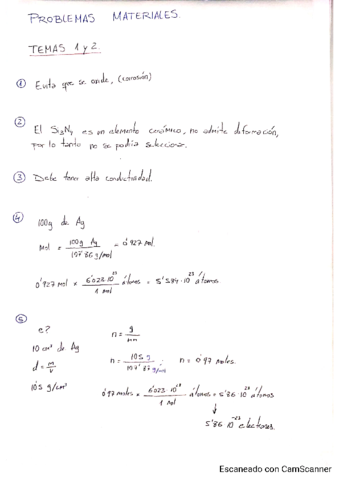 PROBLEMAS MATERIALES.
TEMAS 1 y 2.
① Evita que se oxide, (corrosión)
② El Si3N4 es un elemento cerámico, no admite deformación,
por lo tanto no se podría seleccionar.
③ Debe tener alta conductividad.
④
100g de Ag
Mol = 100g Ag / 107'86 g/mol = 0'927 mol.
0'927 mol × 6'023·10²³ átomos / 1 mol = 5'584·10²³ átomos
⑤
e?
10 cm³ de Ag
d = m/v
10'5 g/cm³
n = g/mm
n = 105 g / 107'87 g/mol n = 0'97 moles.
0'97 moles × 6'023·10²³ átomos / 1 mol = 5'86·10²³ átomos
↓
5'86 10⁻²³ electrones.
Escaneado con CamScanner